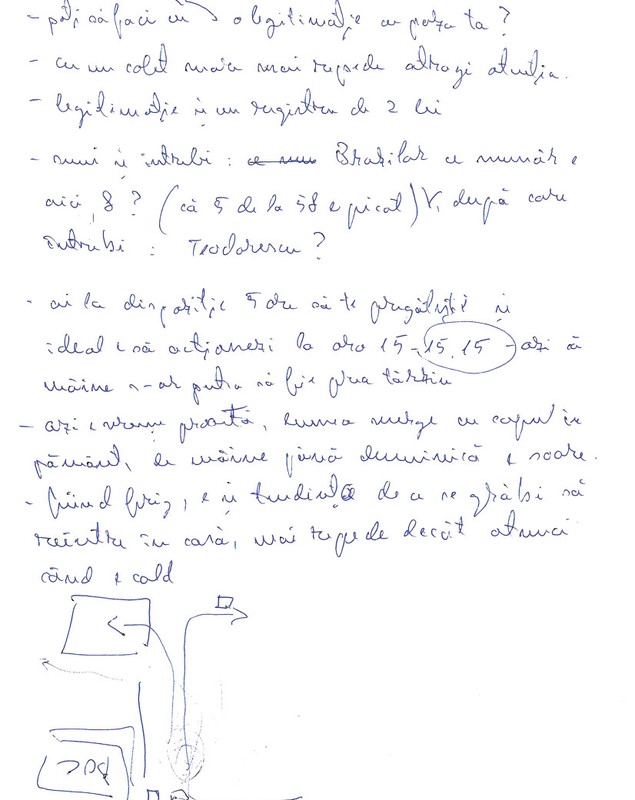 - poți să faci cu o legitimație cu poza ta?
- cu un colet mare mai repede atragi atenția.
- legitimație și un registru de 2 lei
- suni și întrebi: Brazilor ce număr e
aici, 8? (că 5 de la 58 e picat) V, după care
întrebi: Teodorescu?
- ai la dispoziție 5 ore să te pregătești și
ideal e să acționezi la ora 15-15,15 - azi că
mâine s-ar putea să fie prea târziu
- azi e vreme proastă, lumea merge cu capul în
pământ, de mâine până duminică e soare.
- fiind frig, e și tendința de a se grăbi să
reintre în casă, mai repede decât atunci
când e cald